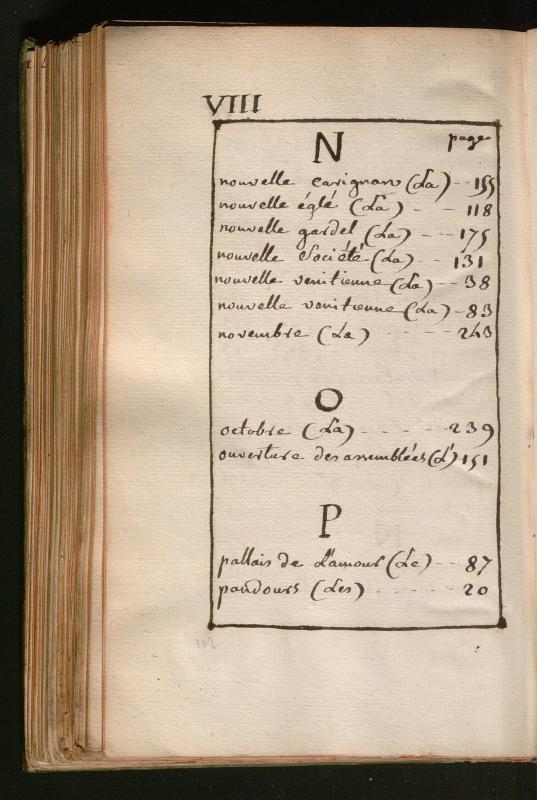 VIII
N page
nouvelle carignan (La) - - 155
nouvelle églé (La) - - 118
nouvelle gardel (La) - - - 175
nouvelle Société (La) - - 131
nouvelle venitienne (La) - - 38
nouvelle vonitienne (La) - 83
novembre (La) - - - - - 243
O
octobre (La) - - - - - - 239
ouverture des assemblées (L') 151
P
pallais de L'amour (Le) - - 87
pandours (Les) - - - - - 20